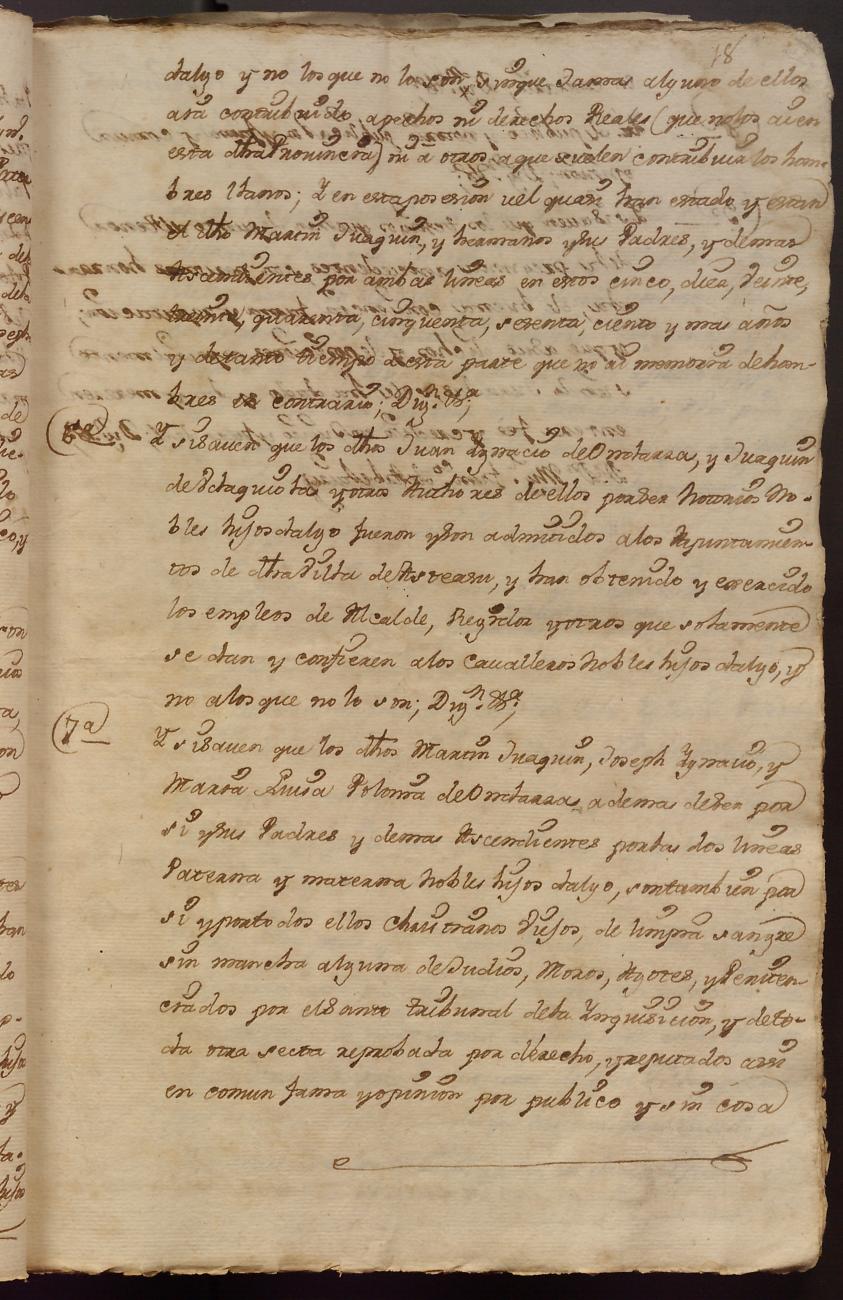 18
dalgo y no los que no lo son, sin que Jamas alguno de ellos
aia contribuido, apechos ni derechos Reales (que no los ai en
esta dha Provincia) ni a otros, a que suelen contribuir los hom-
bres llanos; Y en esta posesion vel quasi han estado, y estan
el dho Martin Juaquin, y hermanos y sus Padres, y demas
Ascendientes por ambas lineas en estos cinco, diez, veinte,
treinta, quarenta, cinquenta, sesenta, ciento y mas años
y de tanto tiempo a esta parte que no ai memoria de hom-
bres en contrario; Dign. &a,
6a Y si saven que los dhos Juan Ygnacio de Ondarza, y Juaquin
de y otros Authores de ellos por ser Notorios No-
bles hijosdalgo fueron y son admitidos a los Ayuntamien-
tos de dha Villa de Asteasu, y han obtenido y exercido
los empleos de Alcalde, Regidor y otros que solamente
se dan y confieren a los Cavalleros Nobles hijosdalgo, y
no a los que no lo son; Dign. &a,
7a Y si saven que los dhos Martin Juaquin, Joseph Ygnacio, y
Maria Luisa Polonia de Ondarza, ademas de ser por
si y sus Padres y demas Ascendientes por las dos lineas
Paterna y materna Nobles hijosdalgo, son tambien por
si y por todos ellos Christianos viejos, de limpia sangre
sin mancha alguna de Judios, Moros, Agotes, y Peniten-
ciados por el Santo tribunal de la Ynquisicion, y de to-
da otra secta reprobada por derecho, y reputados assi
en comun fama y opinion por publico y sin cosa